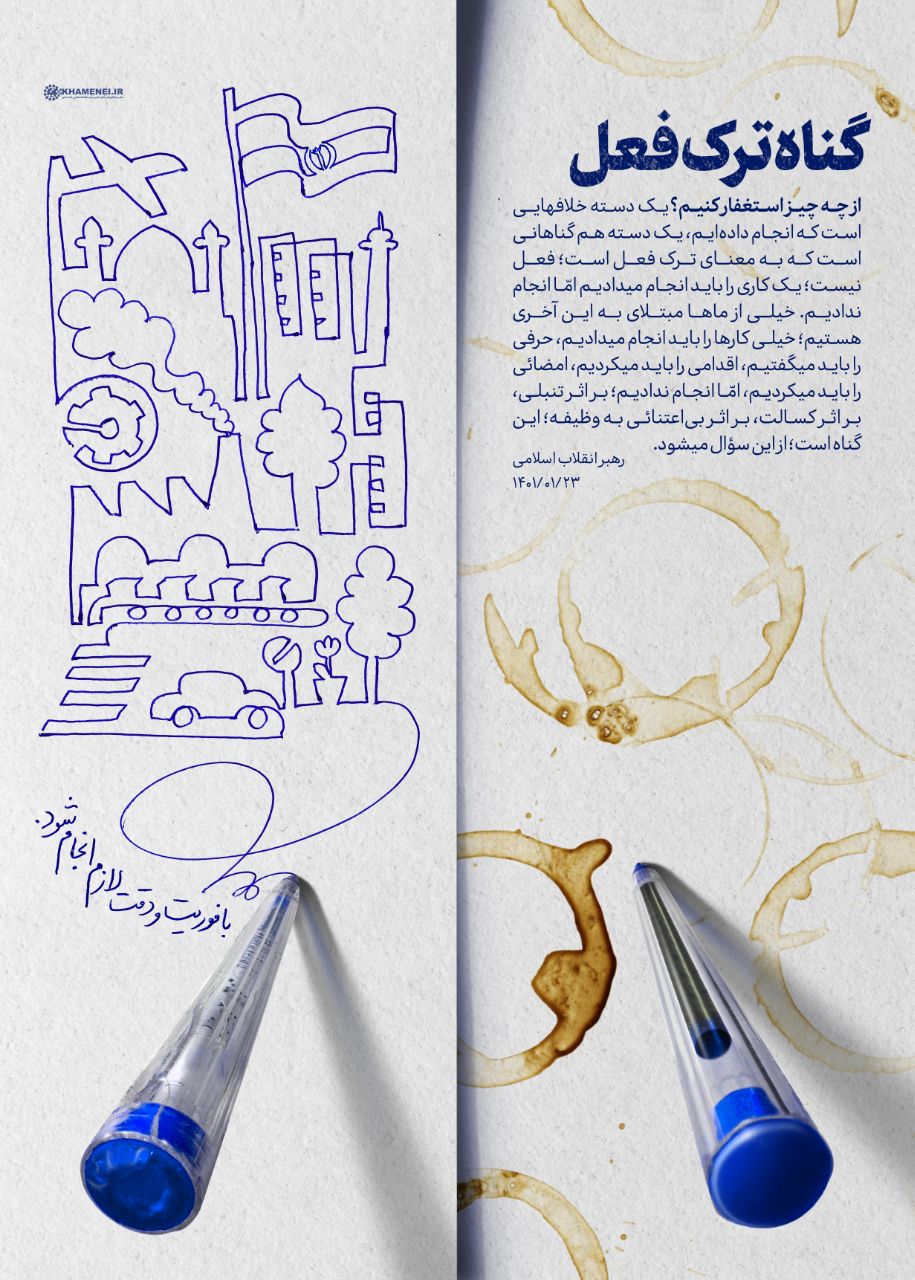 KHAMENEI.IR
گناه ترک فعل
از چه چیز استغفار کنیم؟ یک دسته خلافهایی
است که انجام داده‌ایم، یک دسته هم گناهانی
است که به معنای ترک فعل است؛ فعل
نیست؛ یک کاری را باید انجام میدادیم امّا انجام
ندادیم. خیلی از ماها مبتلای به این آخری
هستیم؛ خیلی کارها را باید انجام میدادیم، حرفی
را باید میگفتیم، اقدامی را باید میکردیم، امضائی
را باید میکردیم، امّا انجام ندادیم؛ بر اثر تنبلی،
بر اثر کسالت، بر اثر بی‌اعتنائی به وظیفه؛ این
گناه است؛ از این سؤال میشود.
رهبر انقلاب اسلامی
۱۴۰۱/۰۱/۲۳
با فوریت و دقت
لازم
انجام
شود.